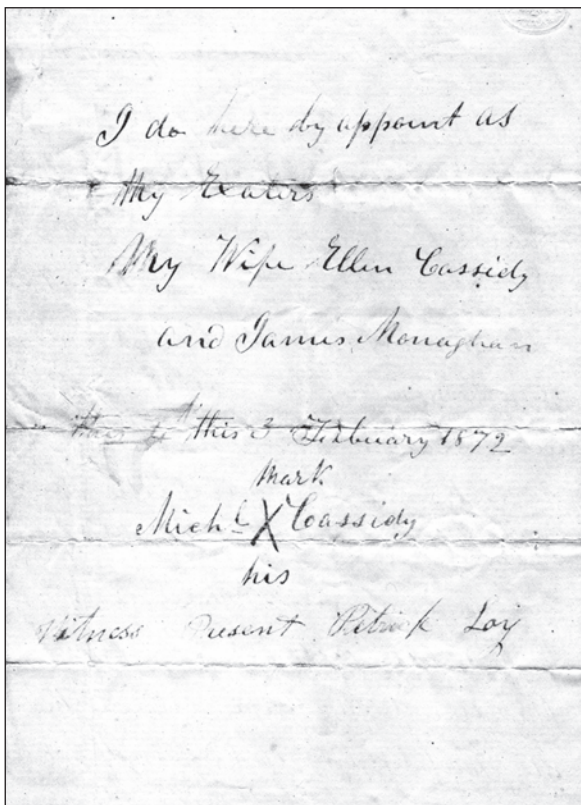 I do here by appoint as
My Exators
My Wife Ellen Cassidy
and James Monaghan
this 3 Febuary 1872
mark
Michl X Cassidy
his
Witness Present Patrick Loy